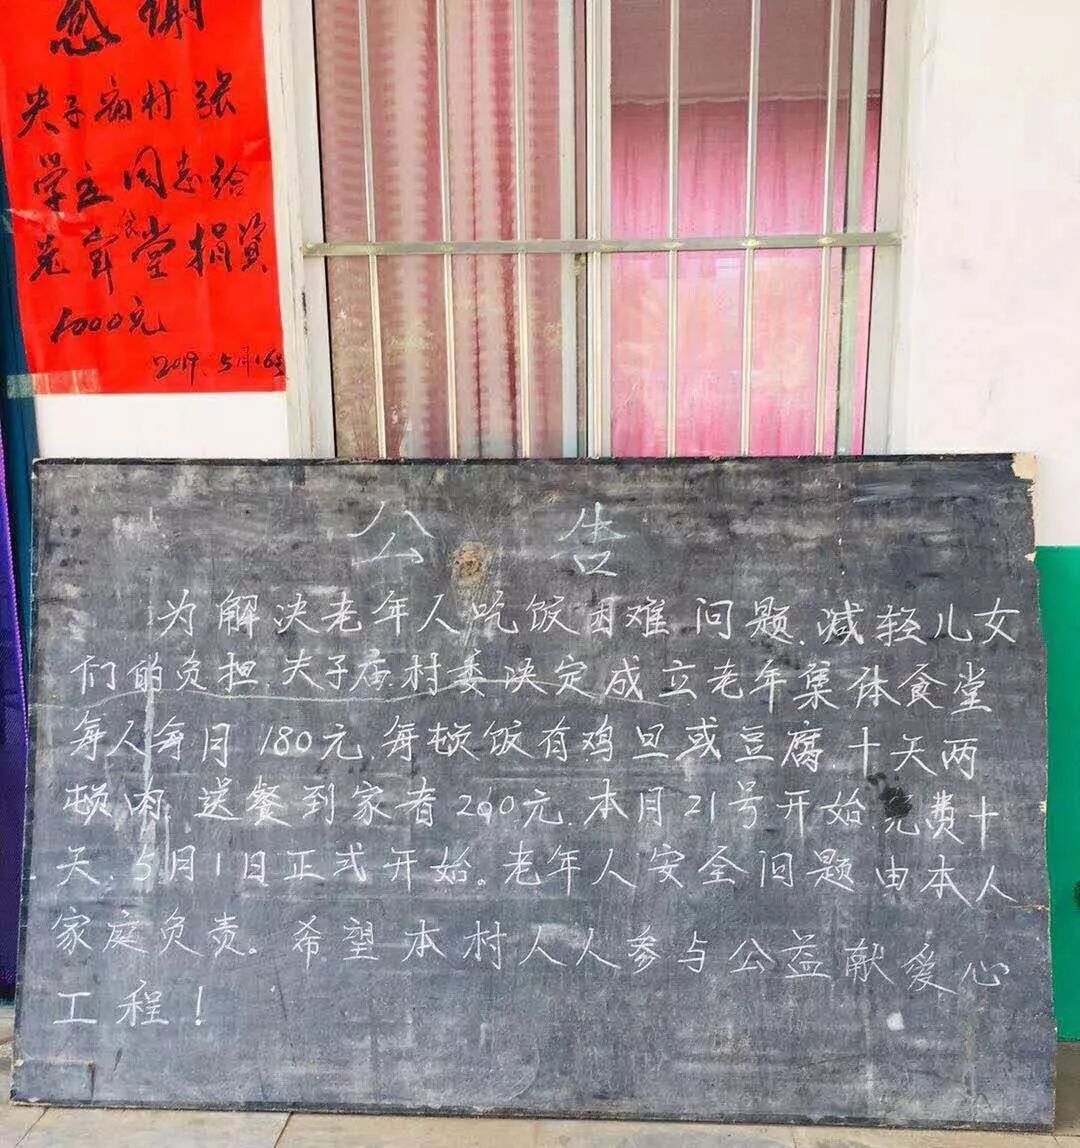 感谢
夫子庙村张
学立同志给
老年食堂捐资
1000元
2019.5月16号
公告
为解决老年人吃饭困难问题.减轻儿女
们的负担.夫子庙村委决定成立老年集体食堂
每人每月180元.每顿饭有鸡旦或豆腐十天两
顿肉.送餐到家者200元.本月21号开始.免费十
天.5月1日正式开始。老年人安全问题由本人
家庭负责。希望本村人人参与公益献爱心
工程!